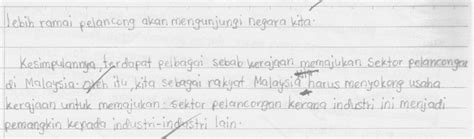 lebih ramai pelancong akan mengunjungi negara kita.
Kesimpulannya, terdapat pelbagai sebab kerajaan memajukan sektor pelancongan
di Malaysia. Oleh itu, kita sebagai rakyat Malaysia harus menyokong usaha
kerajaan untuk memajukan sektor pelancongan kerana industri ini menjadi
pemangkin kepada industri-industri lain.